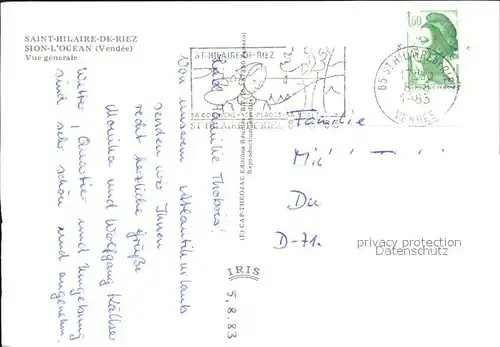 SAINT-HILAIRE-DE-RIEZ
SION-L'OCÉAN (Vendée)
Vue générale
ST-HILAIRE-DE-RIEZ
SA CORNICHE PLAGES
ST HILAIRE DE RIEZ
1,60
85 ST HILAIRE
VENDEE
Liebe Familie Thobois!
Von unserem Atlantikurlaub
senden wir Ihnen
recht herzliche Grüße
Monika und Wolfgang Källser
Wetter, Quartier und Umgebung
sind sehr schön und angenehm.
5.8.83
(E) CAP-THEOJAC
IRIS
Familie
Mic
Du
D-71
privacy protection
Datenschutz